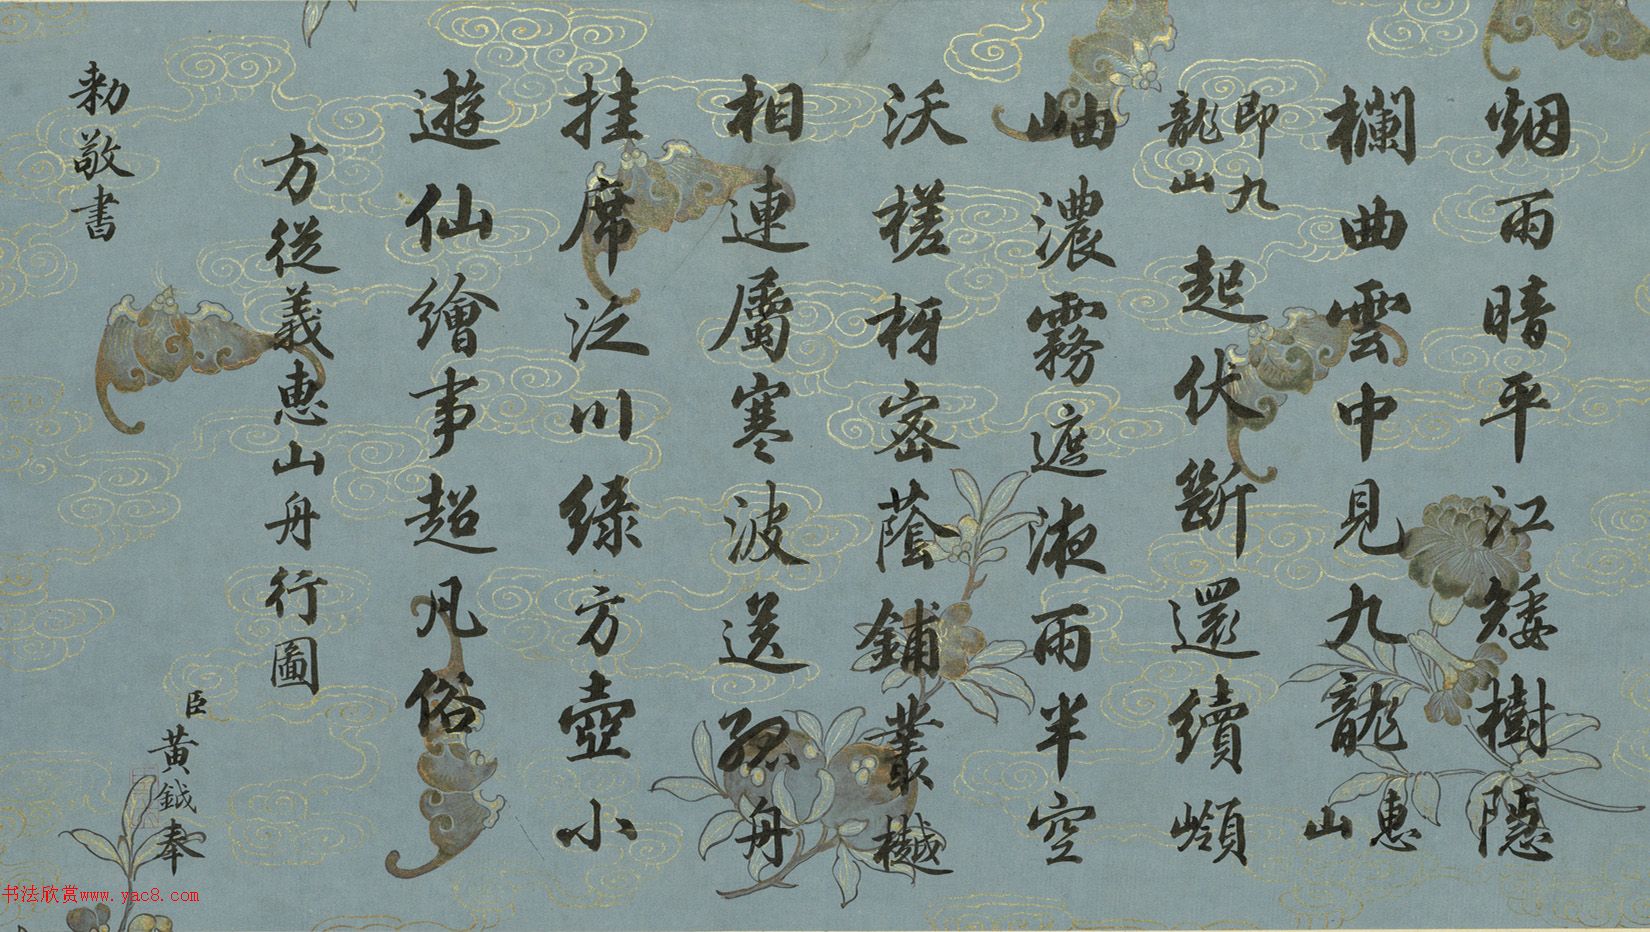 烟雨暗平江矮樹隱
欄曲雲中見九龍惠山
即九龍山起伏斷還續嶺
岫濃霧遮液雨半空
沃槎枒密蔭鋪叢樾
相連屬寒波送孤舟
挂席泛川綠方壺小
遊仙繪事超凡俗
方從義惠山舟行圖
臣黃鉞奉
勅敬書
书法欣赏www.yac8.com